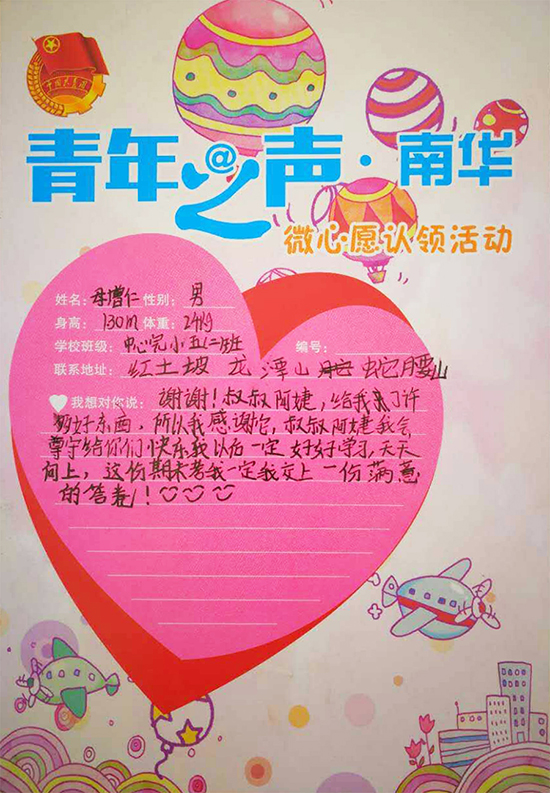 中国共青团
青年之声·南华
@
微心愿认领活动
姓名：母增仁 性别：男
身高：130m 体重：24kg
学校班级：中心完小五(二)班 编号：
联系地址：红土坡 龙潭山 蛇腰山
我想对你说：谢谢！叔叔阿婕，给我来了许
多好东西，所以我感谢您，叔叔阿婕我会
尊宁给你们快乐我以后一定好好学习，天天
向上，这份期末考我一定我交上一份满意
的答卷！